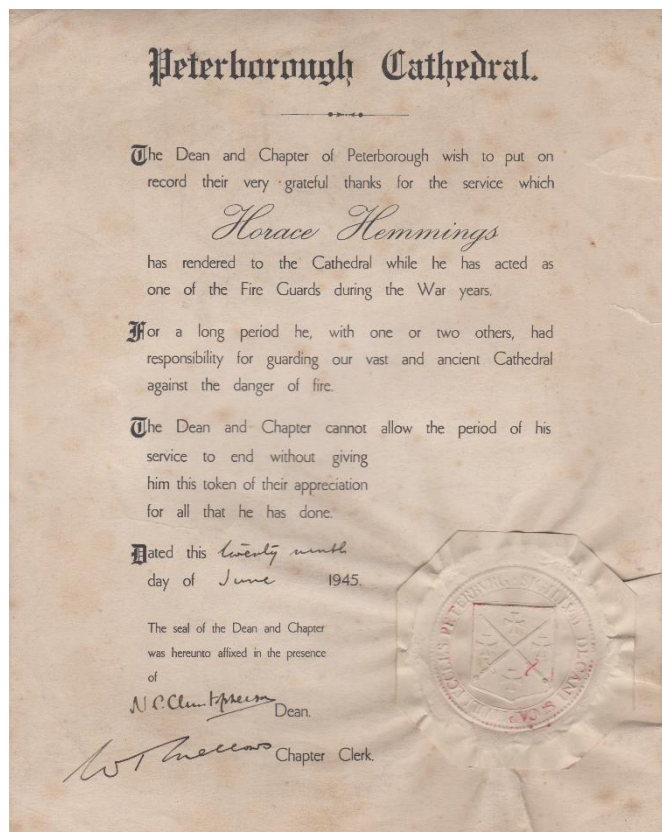 Peterborough Cathedral.
The Dean and Chapter of Peterborough wish to put on
record their very grateful thanks for the service which
Horace Hemmings
has rendered to the Cathedral while he has acted as
one of the Fire Guards during the War years.
For a long period he, with one or two others, had
responsibility for guarding our vast and ancient Cathedral
against the danger of fire.
The Dean and Chapter cannot allow the period of his
service to end without giving
him this token of their appreciation
for all that he has done.
Dated this twenty ninth
day of June 1945.
The seal of the Dean and Chapter
was hereunto affixed in the presence
of
N. C. Christopherson Dean.
W T Mellows Chapter Clerk.